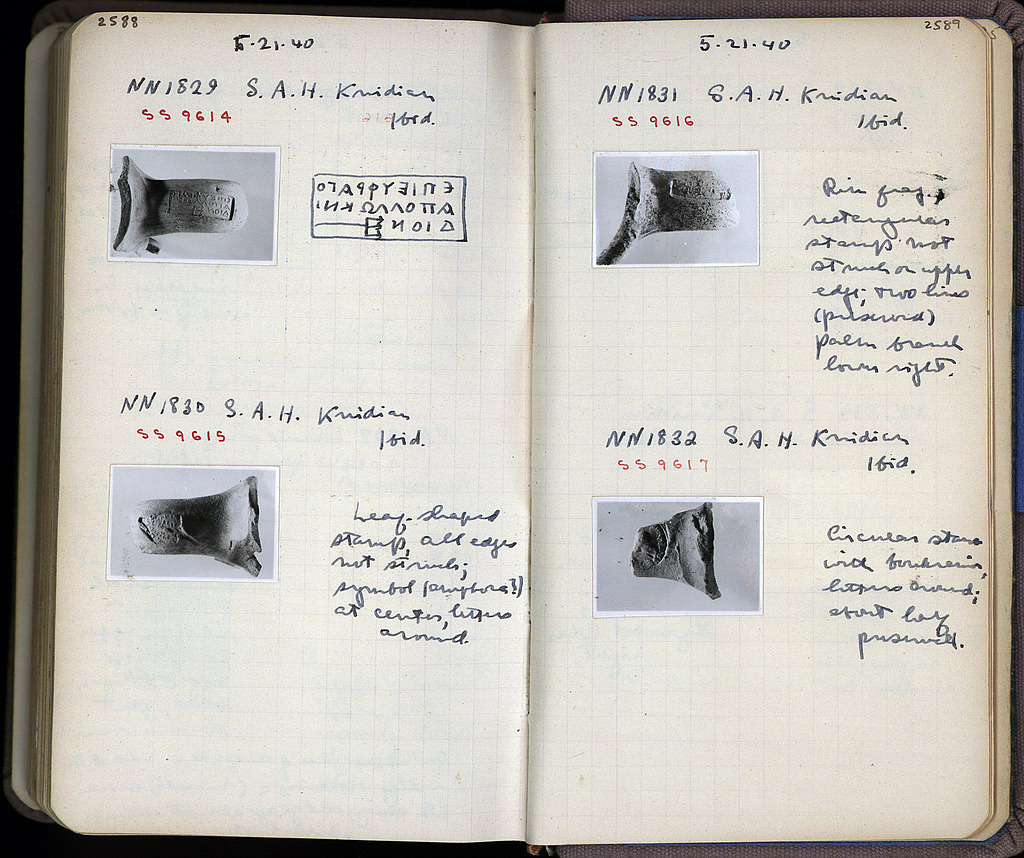 2588
5-21-40
NN1829 S.A.H. Knidian
SS 9614 Ibid.
ΕΠΙΕΥΦΡΑΤΟ
ΑΠΟΛΛΩ ΚΝΙ
ΔΙΟΝ
NN1830 S.A.H. Knidian
SS 9615 Ibid.
Leaf-shaped
stamp, all edges
not struck;
symbol (amphora?)
at center, letters
around.
2589
5-21-40
NN1831 S.A.H. Knidian
SS 9616 Ibid.
Rim frag.,
rectangular
stamp not
struck on upper
edge; two lines
(preserved)
palm branch
lower right.
NN1832 S.A.H. Knidian
SS 9617 Ibid.
Circular stamp
with boukranion,
letters around;
about half
preserved.